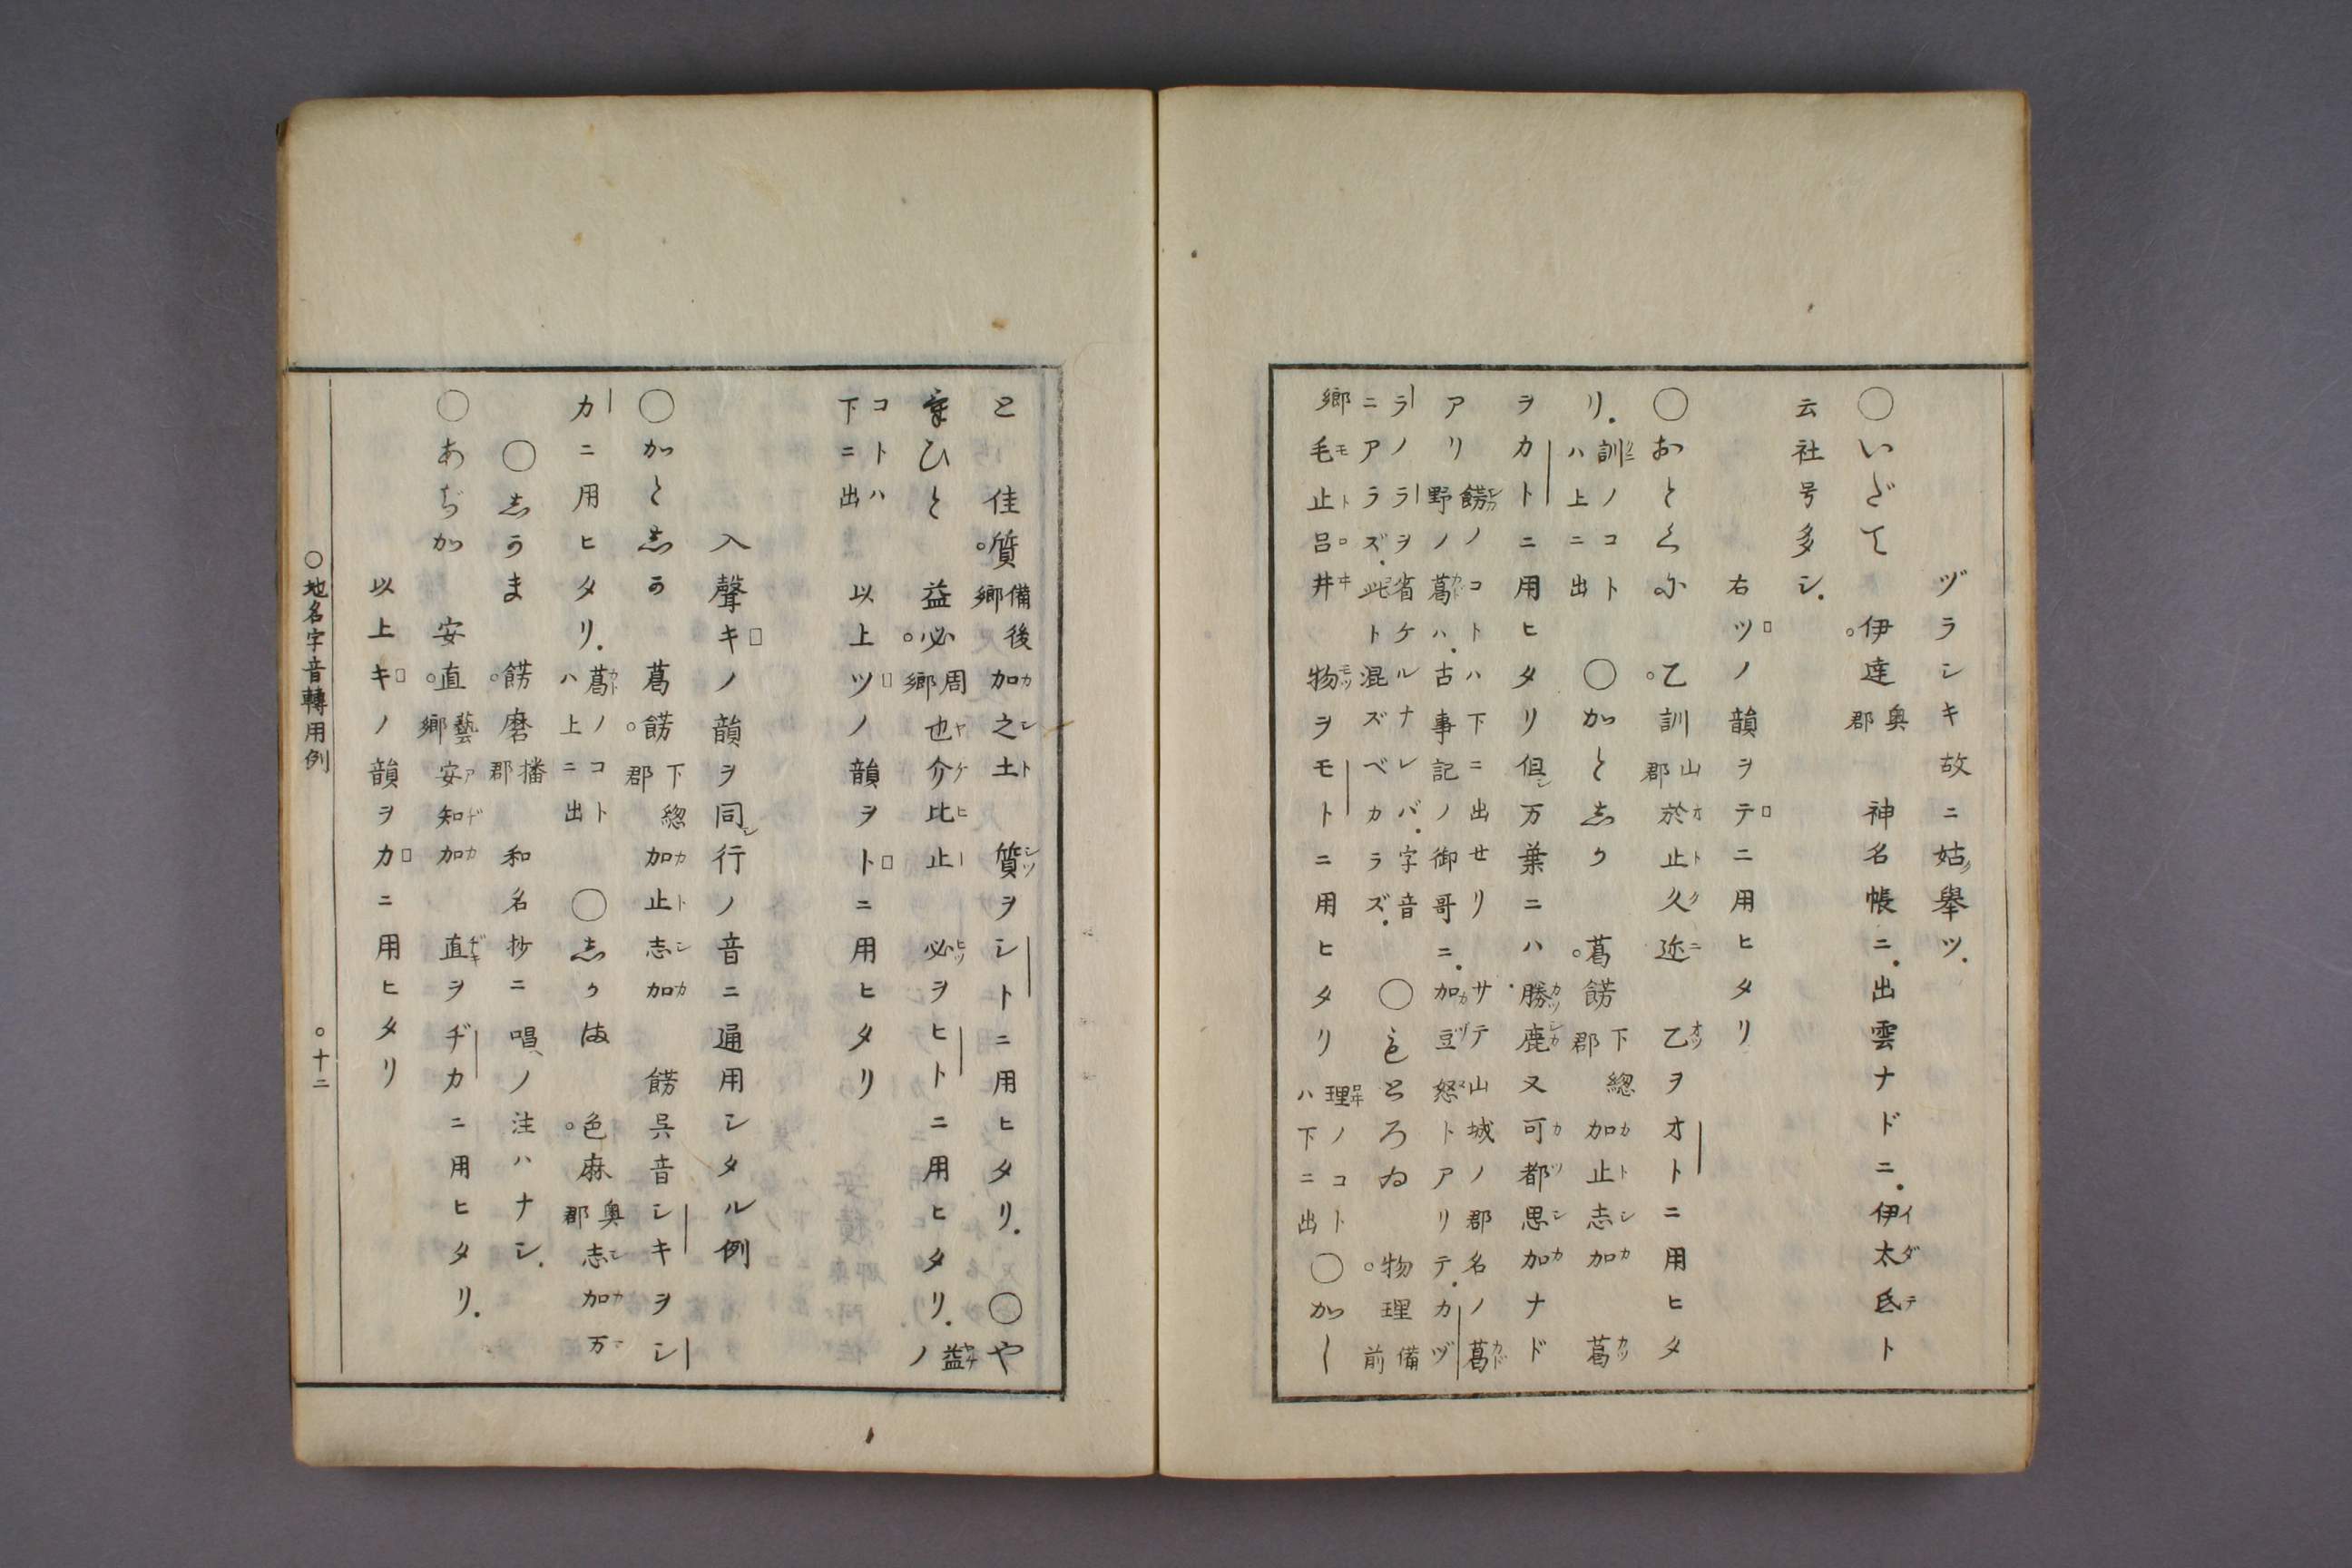 ヅラシキ故ニ姑ク擧ツ.
○いだて 伊達奥郡 神名帳ニ.出雲ナドニ.伊太氐ト
云社号多シ.
右ツノ韻ヲテニ用ヒタリ
○おとくに 乙訓山郡於止久迩 乙ヲオトニ用ヒタ
リ.訓ノコトハ上ニ出 ○かとしか 葛餝下総郡加止志加 葛
ヲカトニ用ヒタリ但シ万葉ニハ.勝鹿又可都思加ナド
アリ 餝ノコトハ下ニ出セリサテ山城ノ郡名ノ葛野ノ葛ハ.古事記ノ御哥ニ.加豆怒トアリテ.カヅ
ラノラヲ省ケルナレバ.字音ニアラズ.此ト混ズベカラズ. ○もとろゐ 物理備前
郷毛止呂井 物ヲモトニ用ヒタリ 理ノコトハ下ニ出 ○かし
と 佳質備後郷加之土 質ヲシトニ用ヒタリ. ○や
けひと 益必周郷也介比止 必ヲヒトニ用ヒタリ.益ノ
コトハ下ニ出 以上ツノ韻ヲトニ用ヒタリ
入聲キノ韻ヲ同シ行ノ音ニ通用シタル例
○かとしか 葛餝下総郡加止志加 餝呉音シキヲシ
カニ用ヒタリ.葛ノコトハ上ニ出 ○しかま 色麻奥郡志加万
○しかま 餝磨播郡 和名抄ニ唱ノ注ハナシ.
○あぢか 安直藝郷安知加 直ヲヂカニ用ヒタリ.
以上キノ韻ヲカニ用ヒタリ
○地名字音轉用例 ○十二